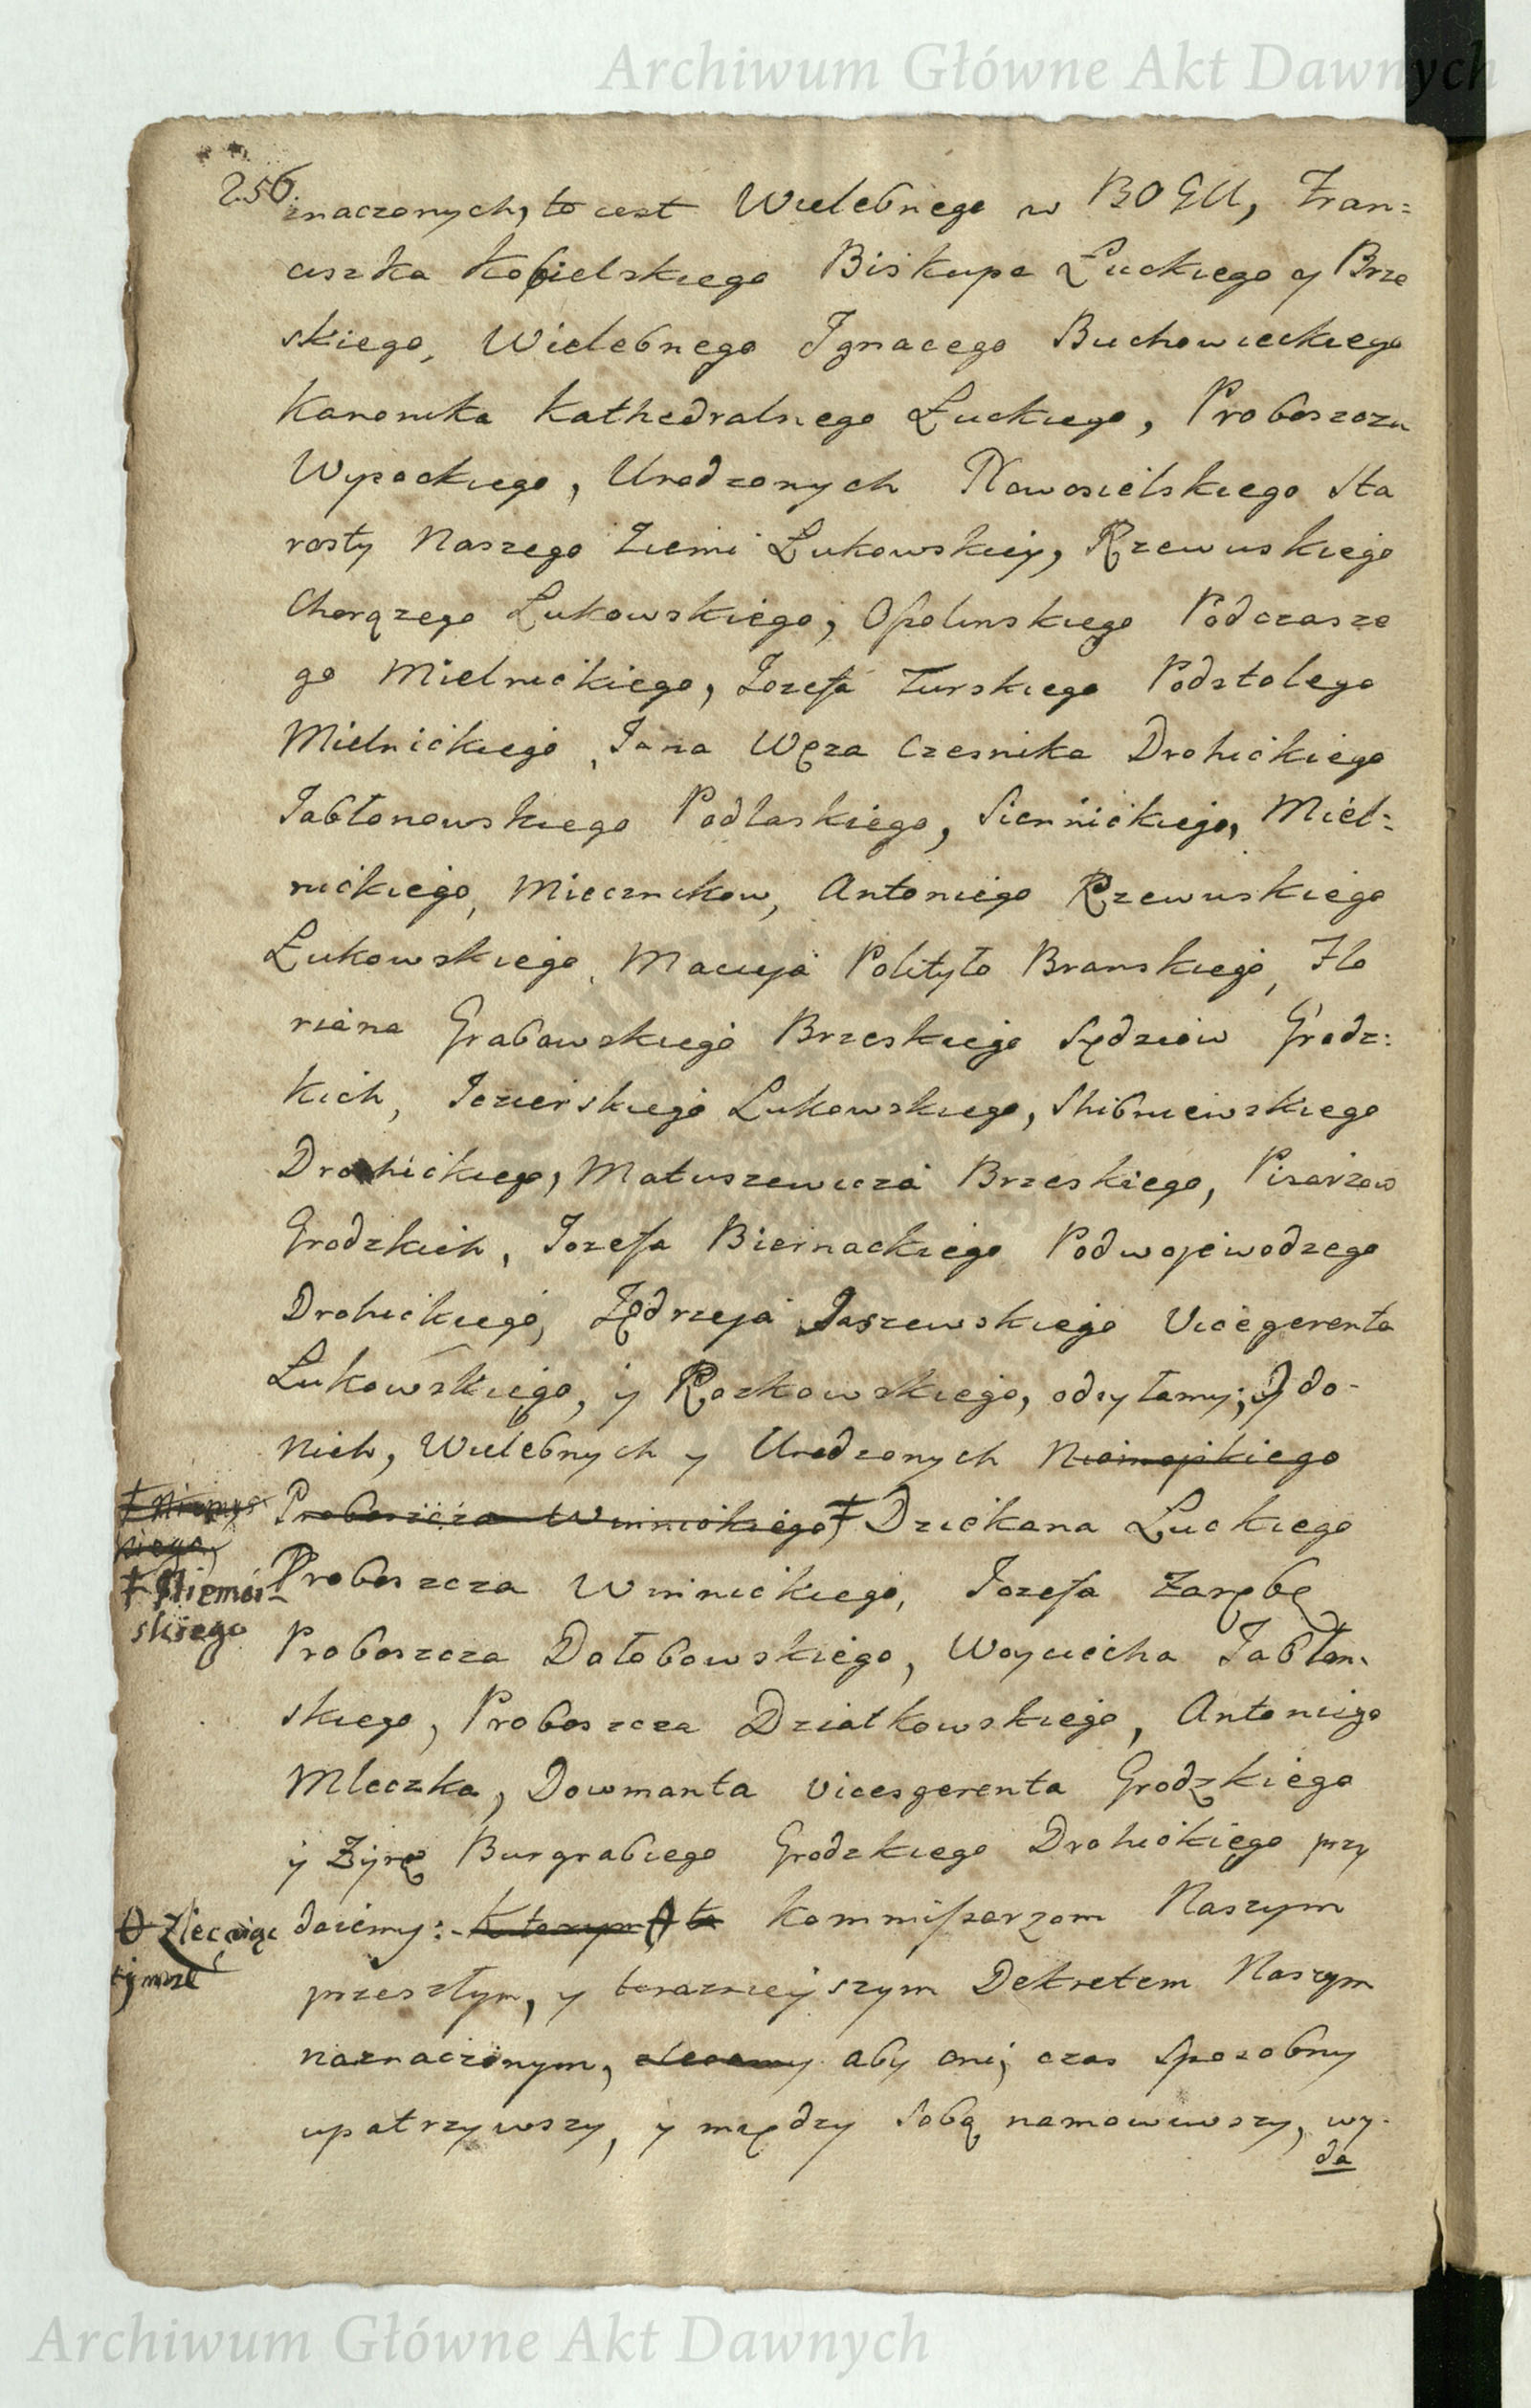 Archiwum Główne Akt Dawnych
256.
znaczonych, to iest Wielebnego w BOGU, Fran=
ciszka Kobielskiego Biskupa Łuckiego y Brze
skiego, Wielebnego Ignacego Buchowieckiego
Kanonika Kathedralnego Łuckiego, Proboszcza
Wysockiego, Urodzonych Nowosielskiego Sta
rosty Naszego Ziemi Łukowskiey, Rzewuskiego
Chorązego Łukowskiego, Opolinskiego Podczasze
go Mielnickiego, Iozefa Turskiego Podstolego
Mielnickiego, Jana Węza Czesnika Drohickiego
Jabłonowskiego Podlaskiego, Siennickiego, Miel=
nickiego, Miecznikow, Antoniego Rzewuskiego
Łukowskiego, Macieja Polityło Branskiego, Flo
riana Grabowskiego Brzeskiego Sędziow Grodz:
kich, Jezierskiego Lukowskiego, Skibniewskiego
Drohickiego, Matuszewicza Brzeskiego, Pisarzow
Grodzkich, Jozefa Biernackiego Podwojewodzego
Drohickiego, Jędrzeja Jaszewskiego Vicegerenta
Lukowskiego, y Roskowskiego, odsyłamy; y do-
nich, Wielebnych y Urodzonych Niemojskiego
Proboszcza Winnickiego ‡ Dziekana Luckiego
‡ Niemoi-
skiego
Proboszcza Winnickiego, Jozefa Zarębę
Proboszcza Dołobowskiego, Woyciecha Jabłon-
skiego, Proboszcza Dziatkowskiego, Antoniego
Mleczka, Dowmanta Vicesgerenta Grodzkiego
y Zyrę Burgrabiego Grodzkiego Drohickiego przy
daiemy: Ktorym to Kommissarzom Naszym
Zlecaiąc
tymze
przeszłym, y teraznieyszym Dekretem Naszym
naznaczonym, zlecamy aby oni, czas sposobny
upatrzywszy, y między sobą namowiwszy, wy-
da
Archiwum Główne Akt Dawnych